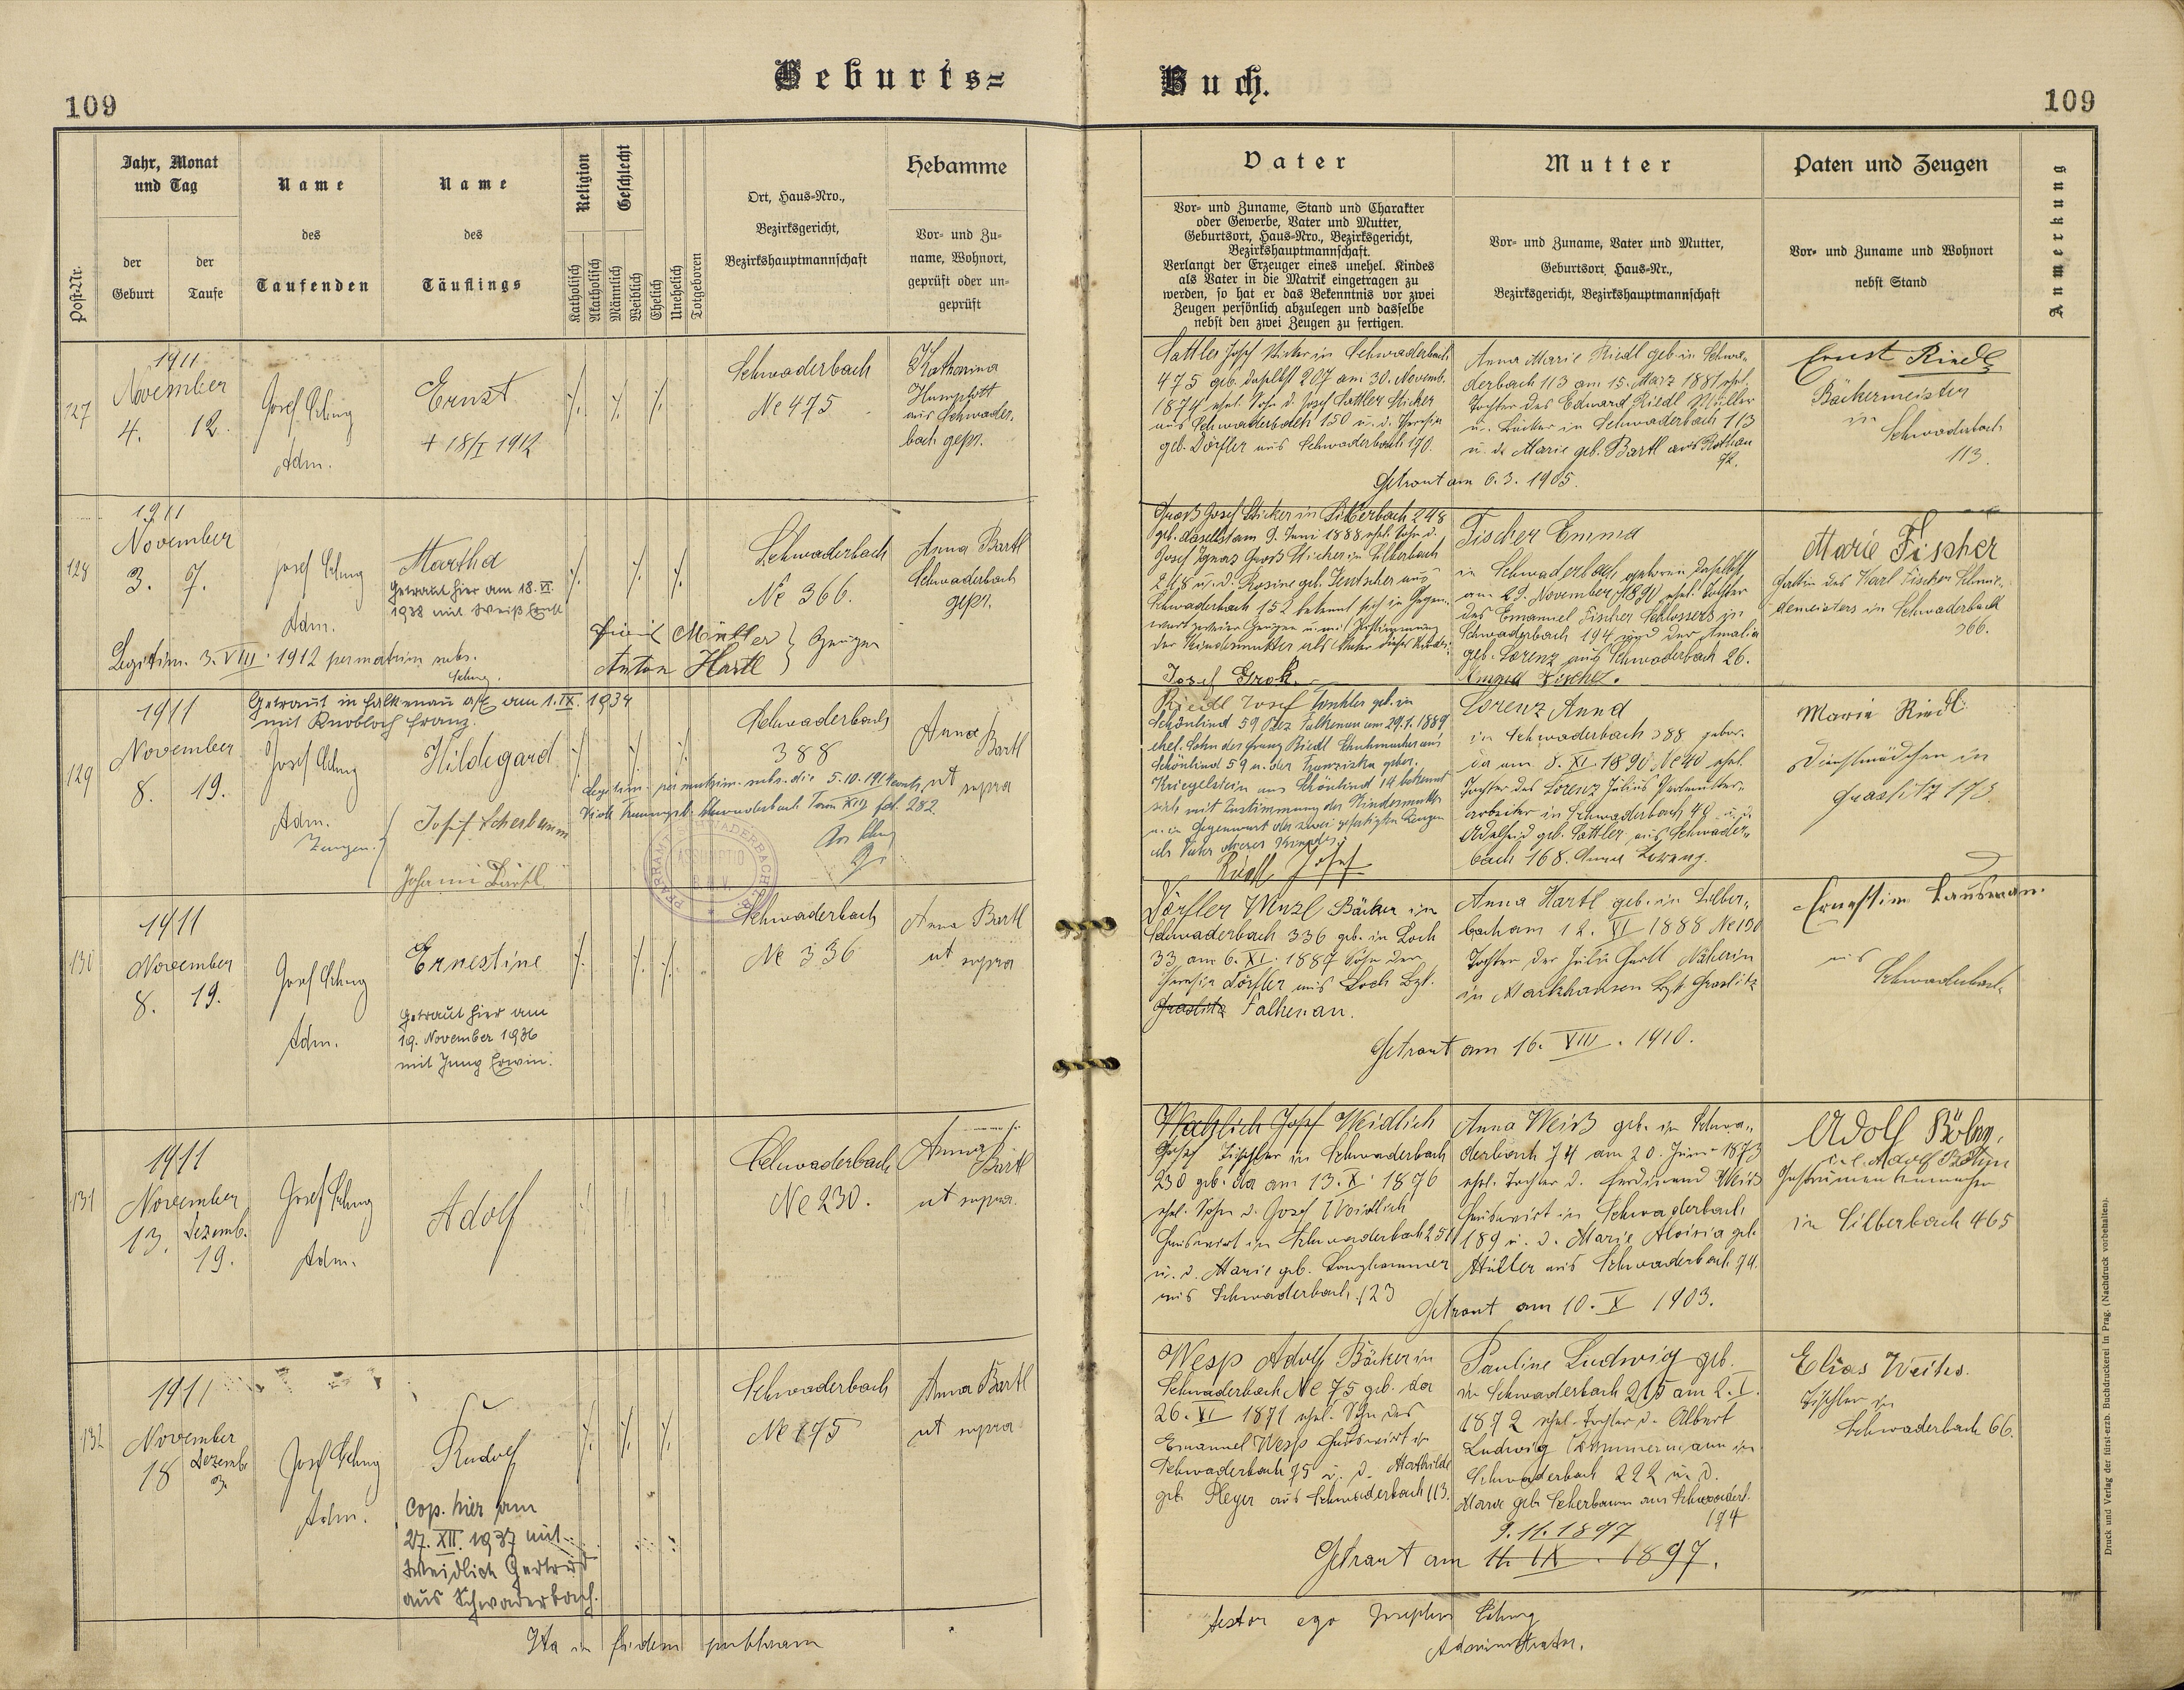 Geburts=
Buch.
109
109
Post-Nr.
Jahr, Monat
und Tag
der
Geburt
der
Taufe
Name
des
Taufenden
Name
des
Täuflings
Religion
Katholisch
Akatholisch
Geschlecht
Männlich
Weiblich
Ehelich
Unehelich
Totgeboren
Ort, Haus-Nro.,
Bezirksgericht,
Bezirkshauptmannschaft
Hebamme
Vor- und Zu-
name, Wohnort,
geprüft oder un-
geprüft
Vater
Vor- und Zuname, Stand und Charakter
oder Gewerbe, Vater und Mutter,
Geburtsort, Haus-Nro., Bezirksgericht,
Bezirkshauptmannschaft.
Verlangt der Erzeuger eines unehel. Kindes
als Vater in die Matrik eingetragen zu
werden, so hat er das Bekenntnis vor zwei
Zeugen persönlich abzulegen und dasselbe
nebst den zwei Zeugen zu fertigen.
Mutter
Vor- und Zuname, Vater und Mutter,
Geburtsort, Haus-Nr.,
Bezirksgericht, Bezirkshauptmannschaft
Paten und Zeugen
Vor- und Zuname und Wohnort
nebst Stand
Anmerkung
127
1911
November
4. 12.
Josef
Adm.
Ernst
+ 18/I 1912
Schwaderbach
No 475
Katharina
aus Schwader-
bach gepr.
Sattler Josef Sticker in Schwaderbach
475 geb. daselbst 207 am 30. Novemb.
1874 ehel. Sohn d. Josef Sattler Sticker
aus Schwaderbach 150 u. d. Theresia
geb. Dörfler aus Schwaderbach 170.
Anna Marie Riedl geb. in Schwa-
derbach 113 am 15. März 1881 ehel.
Tochter des Eduard Riedl Müller
u. Bäcker in Schwaderbach 113
u. d. Marie geb. Bartl aus Rothau
72.
Getraut am 6.3. 1905.
Ernst Riedl
Bäckermeister
in
Schwaderbach
113.
128
1911
November
3. 7.
Josef
Adm.
Martha
Getraut hier am 18. VI.
1938 mit Weiß Ernst
Legitim. 3. VIII. 1912 per matrim. subs.
Schwaderbach
No 366.
Anna Bartl
Schwaderbach
gepr.
Müller } Zeugen
Anton Hartl
Groß Josef Sticker in Silberbach 248
geb. daselbst am 9. Juni 1888 ehel. Sohn d.
Josef Ignaz Groß Sticker in Silberbach
248 u. d. Rosine geb. aus
Schwaderbach 152 bekennt sich in Gegen-
wart zweier Zeugen u. mit Zustimmung
der Kindesmutter als Vater dieses Kindes.
Josef Groß.
Fischer Emma
in Schwaderbach geboren daselbst
am 29. November 1890 ehel. Tochter
des Emanuel Fischer Schlossers in
Schwaderbach 194 und der Amalia
geb. Lorenz aus Schwaderbach 26.
Emma Fischer.
Marie Fischer
Gattin des Karl Fischer Schmie-
demeisters in Schwaderbach
366.
129
1911
November
8. 19.
Getraut in Falkenau a/E am 1. IX. 1934
mit Knobloch Franz.
Josef
Adm.
Zeugen:
Hildegard
Josef Scherbaum
Johann Bartl
Schwaderbach
388
Anna
Bartl
ut supra
Legitim. per matrim. subs. die 5.10.1914
Schwaderbach Tom XIII fol. 282.
PFARRAMT SCHWADERBACH
ASSUMPTIO
B.M.V.
Riedl Josef geb. in
Schönlind 59 Bez. Falkenau am 29.1.1889
ehel. Sohn des Franz Riedl Schuhmacher aus
Schönlind 59 u. der Franziska gebor.
Kriegelstein aus Schönlind 14 bekennt
sich mit Zustimmung der Kindesmutter
u. in Gegenwart der zwei gefertigten Zeugen
als Vater dieses Kindes:
Riedl Josef
Lorenz Anna
in Schwaderbach 388 gebor.
da am 8. XI. 1890 No 40 ehel.
Tochter des Lorenz Julius
arbeiter in Schwaderbach 40 u. d.
Adelheid geb. Sattler aus Schwader-
bach 168. Anna Lorenz.
Marie Riedl
Dienstmädchen in
Graslitz 173
130
1911
November
8. 19.
Josef
Adm.
Ernestine
Getraut hier am
19. November 1936
mit Jung Erwin.
Schwaderbach
No 336
Anna Bartl
ut supra
Dörfler Wenzl Bäcker in
Schwaderbach 336 geb. in Loch
33 am 6. XI. 1887 Sohn der
Theresia Dörfler aus Loch Bzk.
Graslitz Falkenau.
Anna Hartl geb. in Silber-
bach am 12. VI 1888 No 190
Tochter der Julie Hartl Näherin
in Markhausen Bzk. Graslitz
Getraut am 16. VIII. 1910.
aus
Schwaderbach
131
1911
November
13. Dezemb.
19.
Josef
Adm.
Adolf
Schwaderbach
No 230.
Anna
Bartl
ut supra.
Josef Weidlich
Josef Tischler in Schwaderbach
230 geb. da am 13. X. 1876
ehel. Sohn d. Josef Weidlich
Hauswirt in Schwaderbach 251
u. d. Marie geb. Langhammer
aus Schwaderbach 123
Anna Weiß geb. in Schwa-
derbach 74 am 20. Juni 1873
ehel. Tochter d. Ferdinand Weiß
Hauswirt in Schwaderbach
189 u. d. Marie Aloisia geb.
Müller aus Schwaderbach 74.
Getraut am 10. X 1903.
Adolf
Instrumentenmacher
in Silberbach 465
132
1911
November
18 Dezemb.
3.
Josef
Adm.
Rudolf
cop. hier am
27. XII. 1937 mit
Weidlich Gertrud
aus Schwaderbach.
Schwaderbach
No 75
Anna Bartl
ut supra
Wesp Adolf Bäcker in
Schwaderbach No 75 geb. da
26. VI 1871 ehel. Sohn des
Emanuel Wesp Hauswirt in
Schwaderbach 75 u. d. Mathilde
geb. Pleyer aus Schwaderbach 113.
Pauline Ludwig geb.
in Schwaderbach 215 am 2. I.
1872 ehel. Tochter d. Albert
Ludwig Zimmermann in
Schwaderbach 222 u. d.
Marie geb. Scherbaum aus Schwaderb.
194
9.11.1897
Getraut am 11. IX. 1897.
Elias
Tischler in
Schwaderbach 66.
Ita in fidem publicam
testor ego Josephus
Administrator.
Druck und Verlag der fürst-erzb. Buchdruckerei in Prag. (Nachdruck vorbehalten).